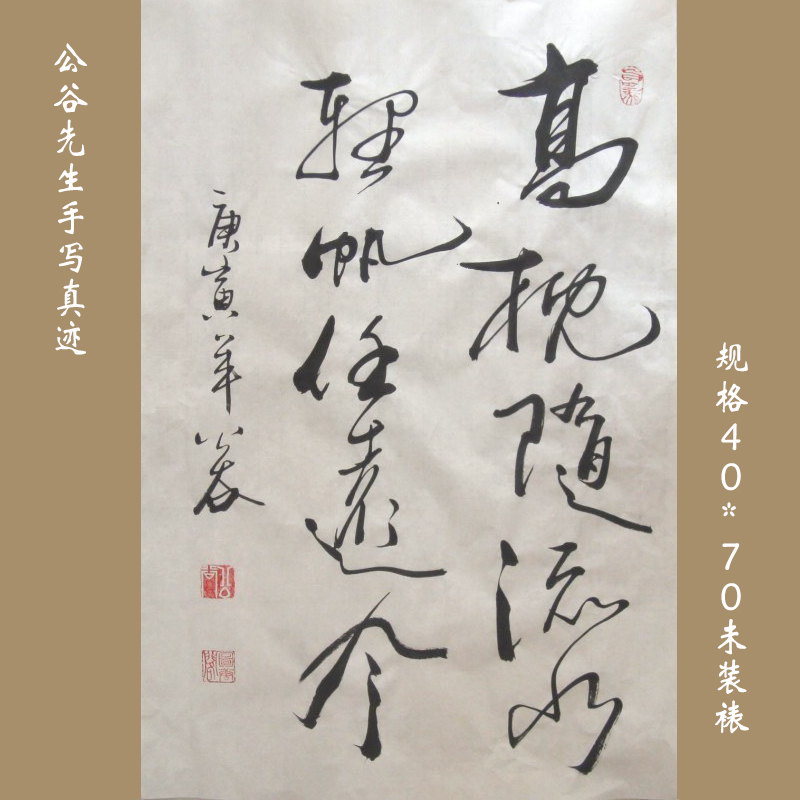 公谷先生手写真迹
高枕隨流水
輕帆任遠風
庚寅年公谷
规格40*70未装裱